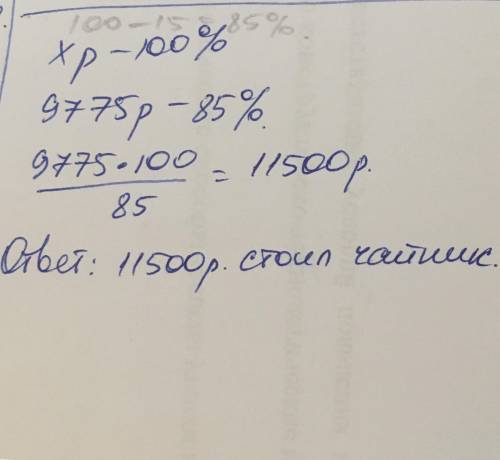 100 - 15 = 85%.
хр - 100%
9775р - 85%.
9775·100
85
= 11500р.
Ответ: 11500р. стоил чайник.